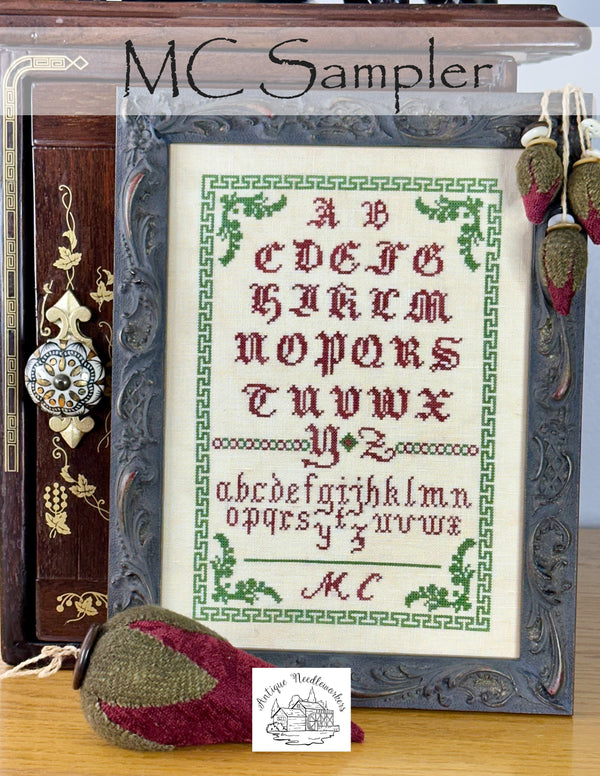 MC Sampler
A B
C D E F G
H I K L M
N O P Q R S
T U V W X
Y Z
abcdefgijhklmn
opqrs t uvwx
y z
MC
Antique Needleworkers